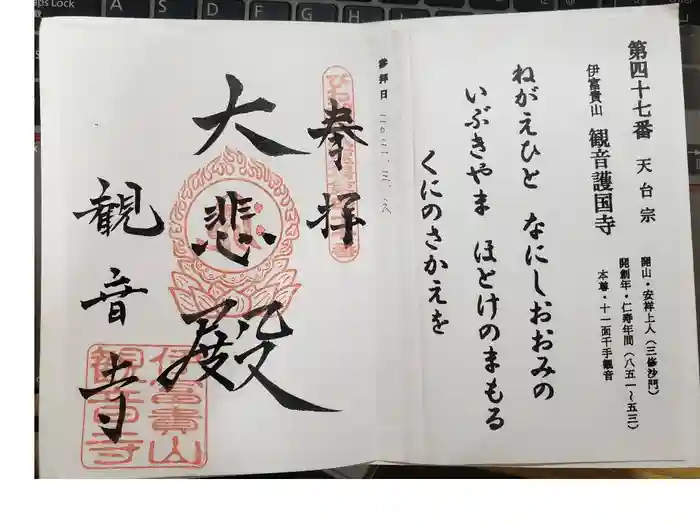 第四十七番 天台宗
伊富貴山 観音護国寺
開山・安祥上人（三修沙門）
開創年・仁寿年間（八五一～五三）
本尊・十一面千手観音
ねがえひと なにしおおみの
いぶきやま ほとけのまもる
くにのさかえを
参拝日
奉拝
大悲殿
観音寺
伊富貴山
観音寺
Caps Lock
A
S
D
F
G
H
J
K
L